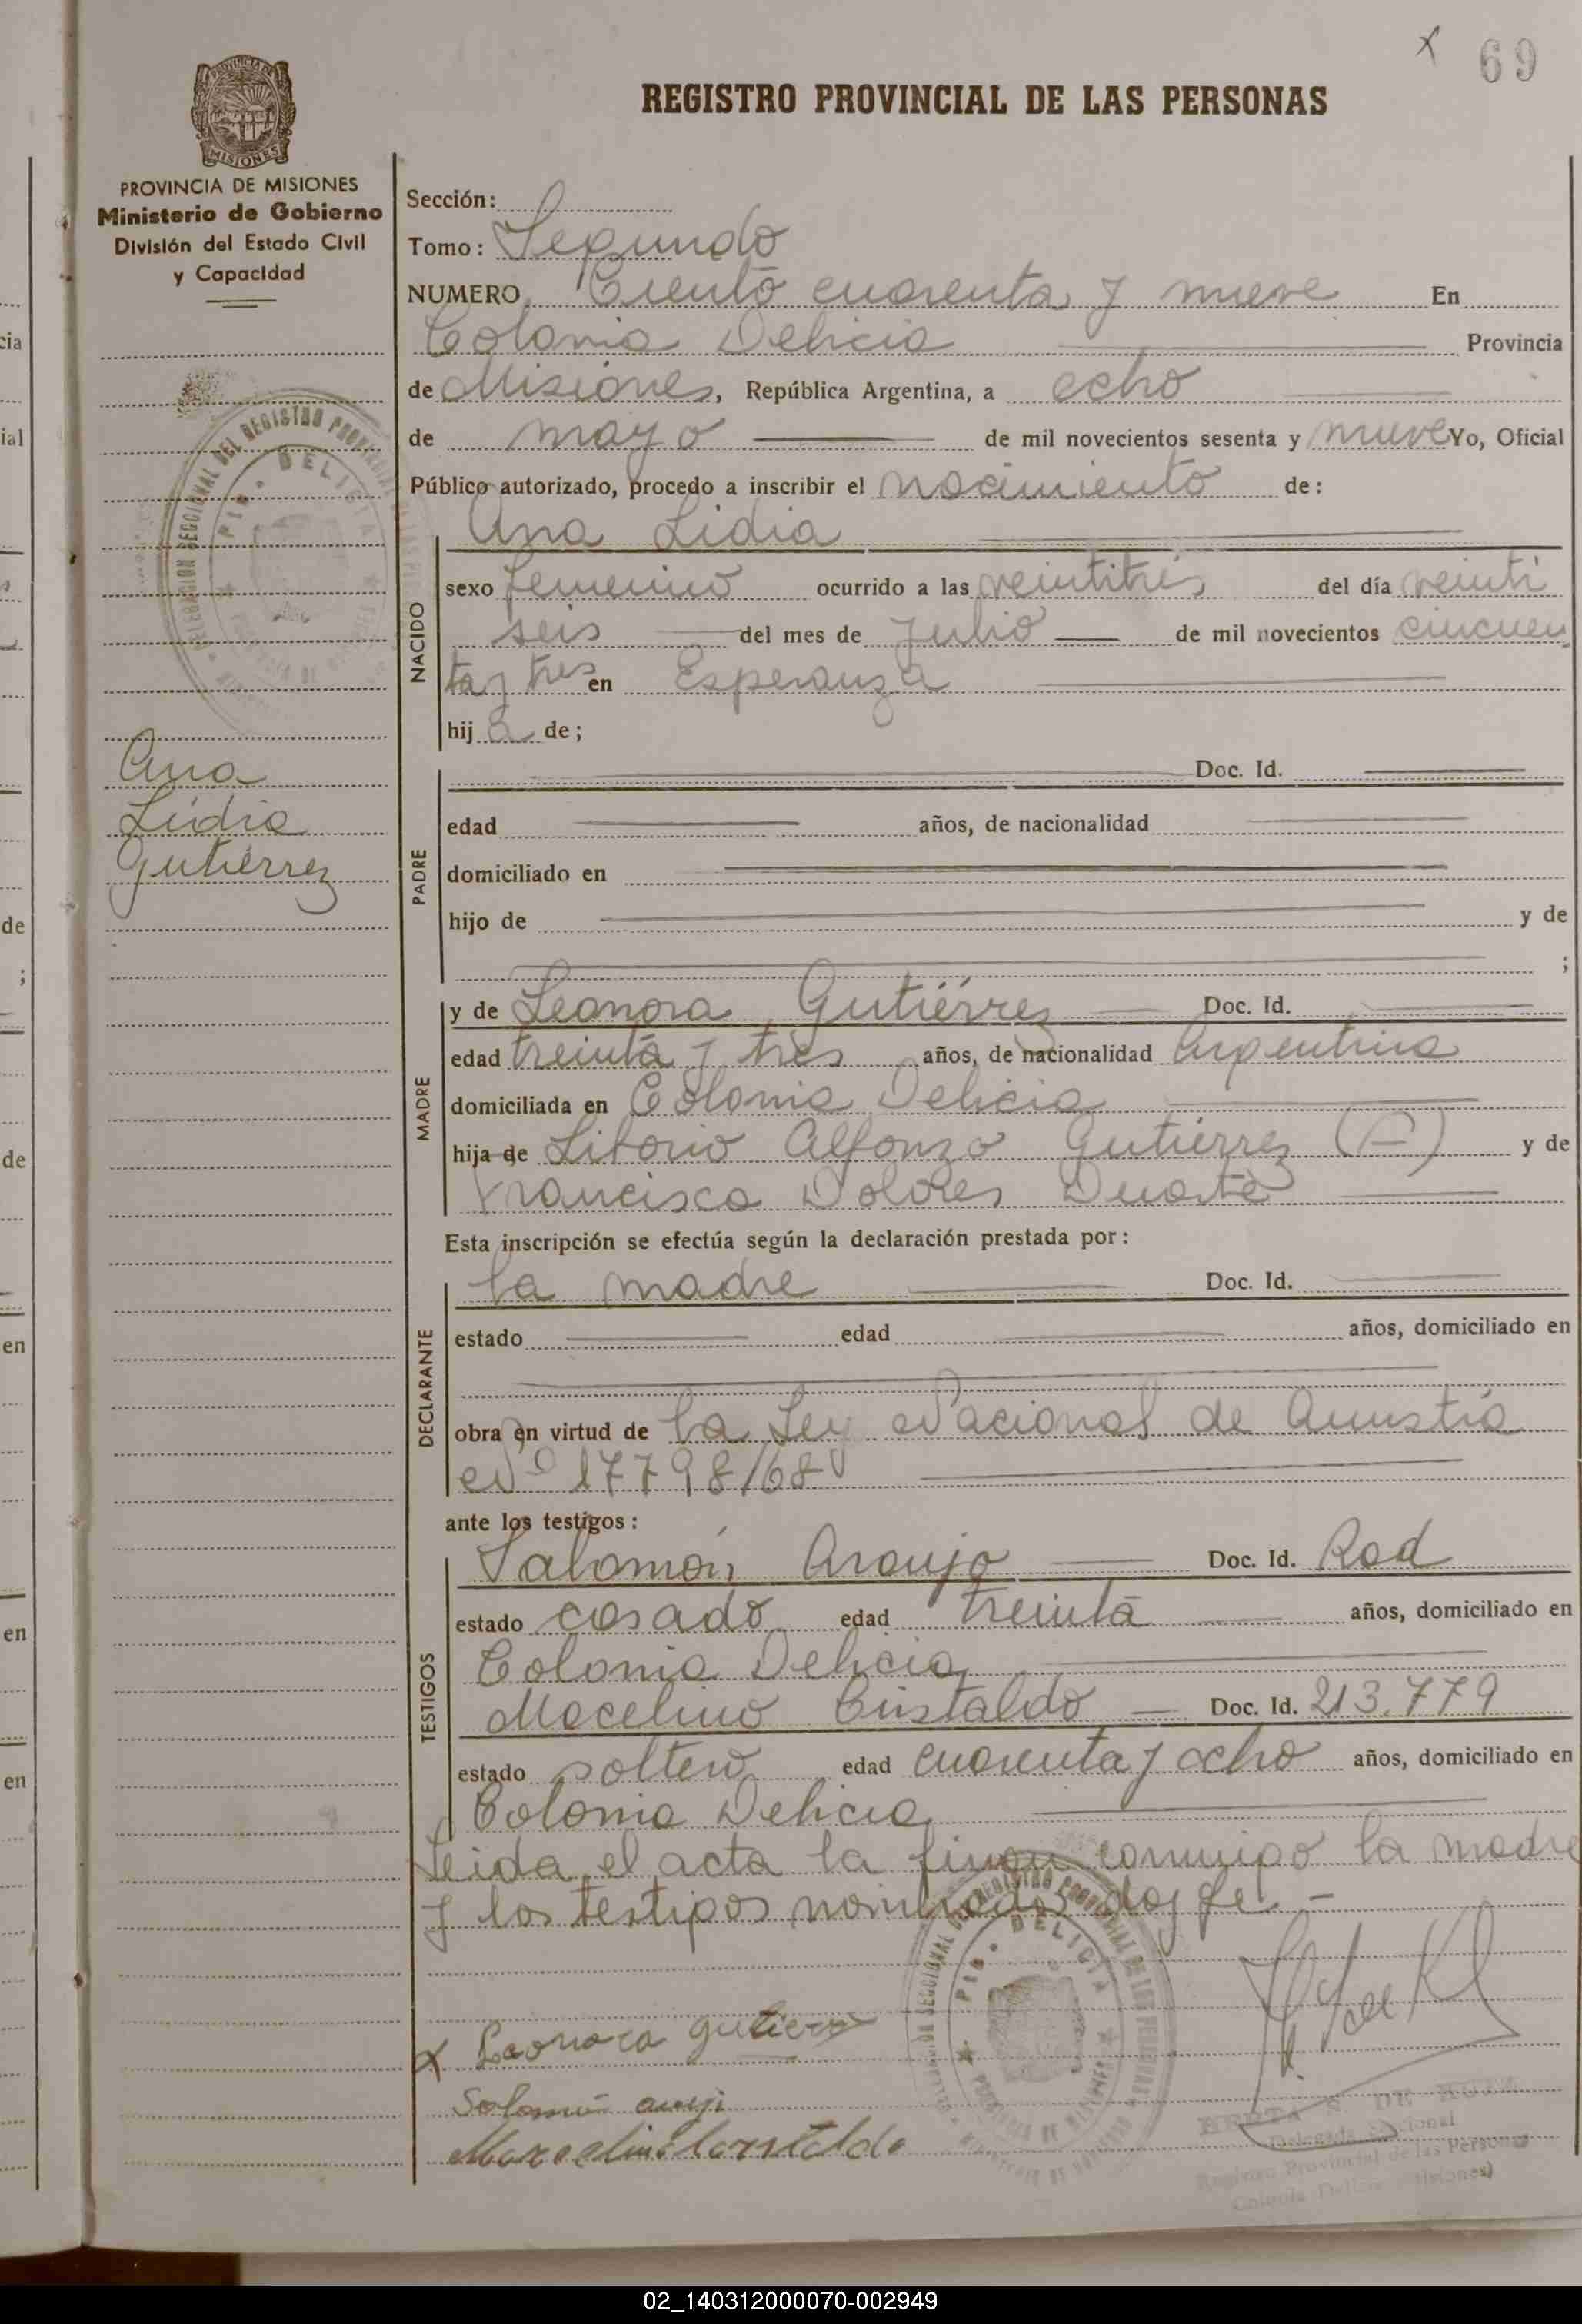 x 69
REGISTRO PROVINCIAL DE LAS PERSONAS
MISIONES
PROVINCIA DE MISIONES
Ministerio de Gobierno
División del Estado Civil
y Capacidad
Sección:
Tomo: Segundo
NUMERO Ciento cuarenta y nueve En
Colonia Delicia Provincia
de Misiones, República Argentina, a ocho
de mayo de mil novecientos sesenta y nueve Yo, Oficial
Público autorizado, procedo a inscribir el nacimiento de:
Ana Lidia
NACIDO
sexo femenino ocurrido a las veintitrés del día veinti
seis del mes de Julio de mil novecientos cincuen
ta y tres en Esperanza
hij a de;
Ana
Lidia
Gutiérrez
PADRE
Doc. Id.
edad años, de nacionalidad
domiciliado en
hijo de y de
;
MADRE
y de Leonora Gutiérrez Doc. Id.
edad treinta y tres años, de nacionalidad Argentina
domiciliada en Colonia Delicia
hija de Litorio Alfonzo Gutiérrez (F) y de
Francisca Dolores Duarte
Esta inscripción se efectúa según la declaración prestada por:
DECLARANTE
la madre Doc. Id.
estado edad años, domiciliado en
obra en virtud de la Ley Nacional de Amnistía
Nº 17798/68
ante los testigos:
TESTIGOS
Salomón Araujo Doc. Id. Rad
estado casado edad treinta años, domiciliado en
Colonia Delicia
Macelino Cristaldo Doc. Id. 213.779
estado soltero edad cuarenta y ocho años, domiciliado en
Colonia Delicia
Leida el acta la firman conmigo la madre
y los testigos nombrados doy fe.-
DELICIA
x Leonora Gutierrez
Marcelino Cristaldo
Registro Provincial de las Personas
02_140312000070-002949